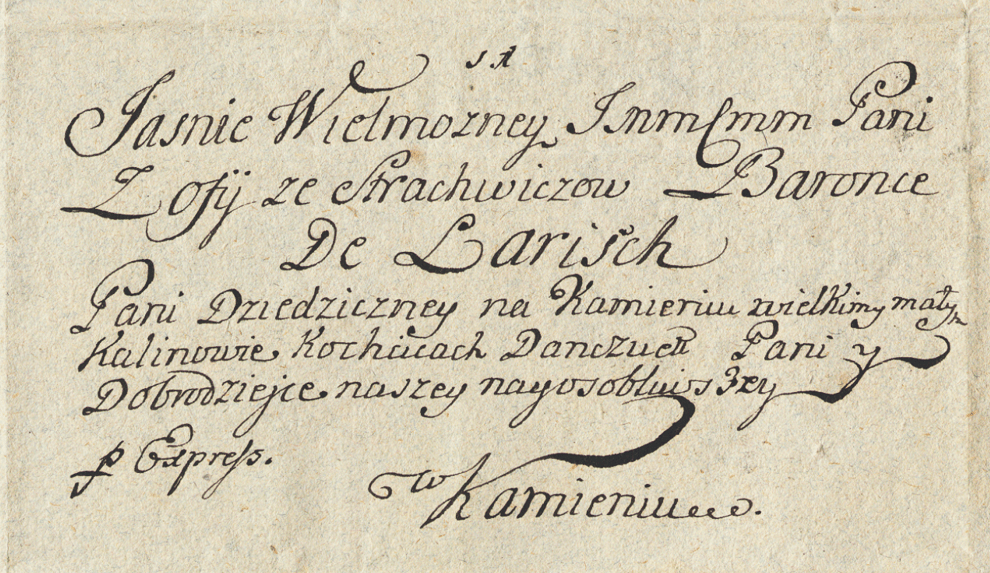 Jasnie Wielmozney Jmmsmm Pani
Zofij ze Strachwiczow Baronce
De Larisch
Pani Dziedziczney na Kamieniu wielkim, małym
Kalinowie Kochcicach Pani y
Dobrodziejce naszey nayosobliwszey
p Express.
w Kamieniu